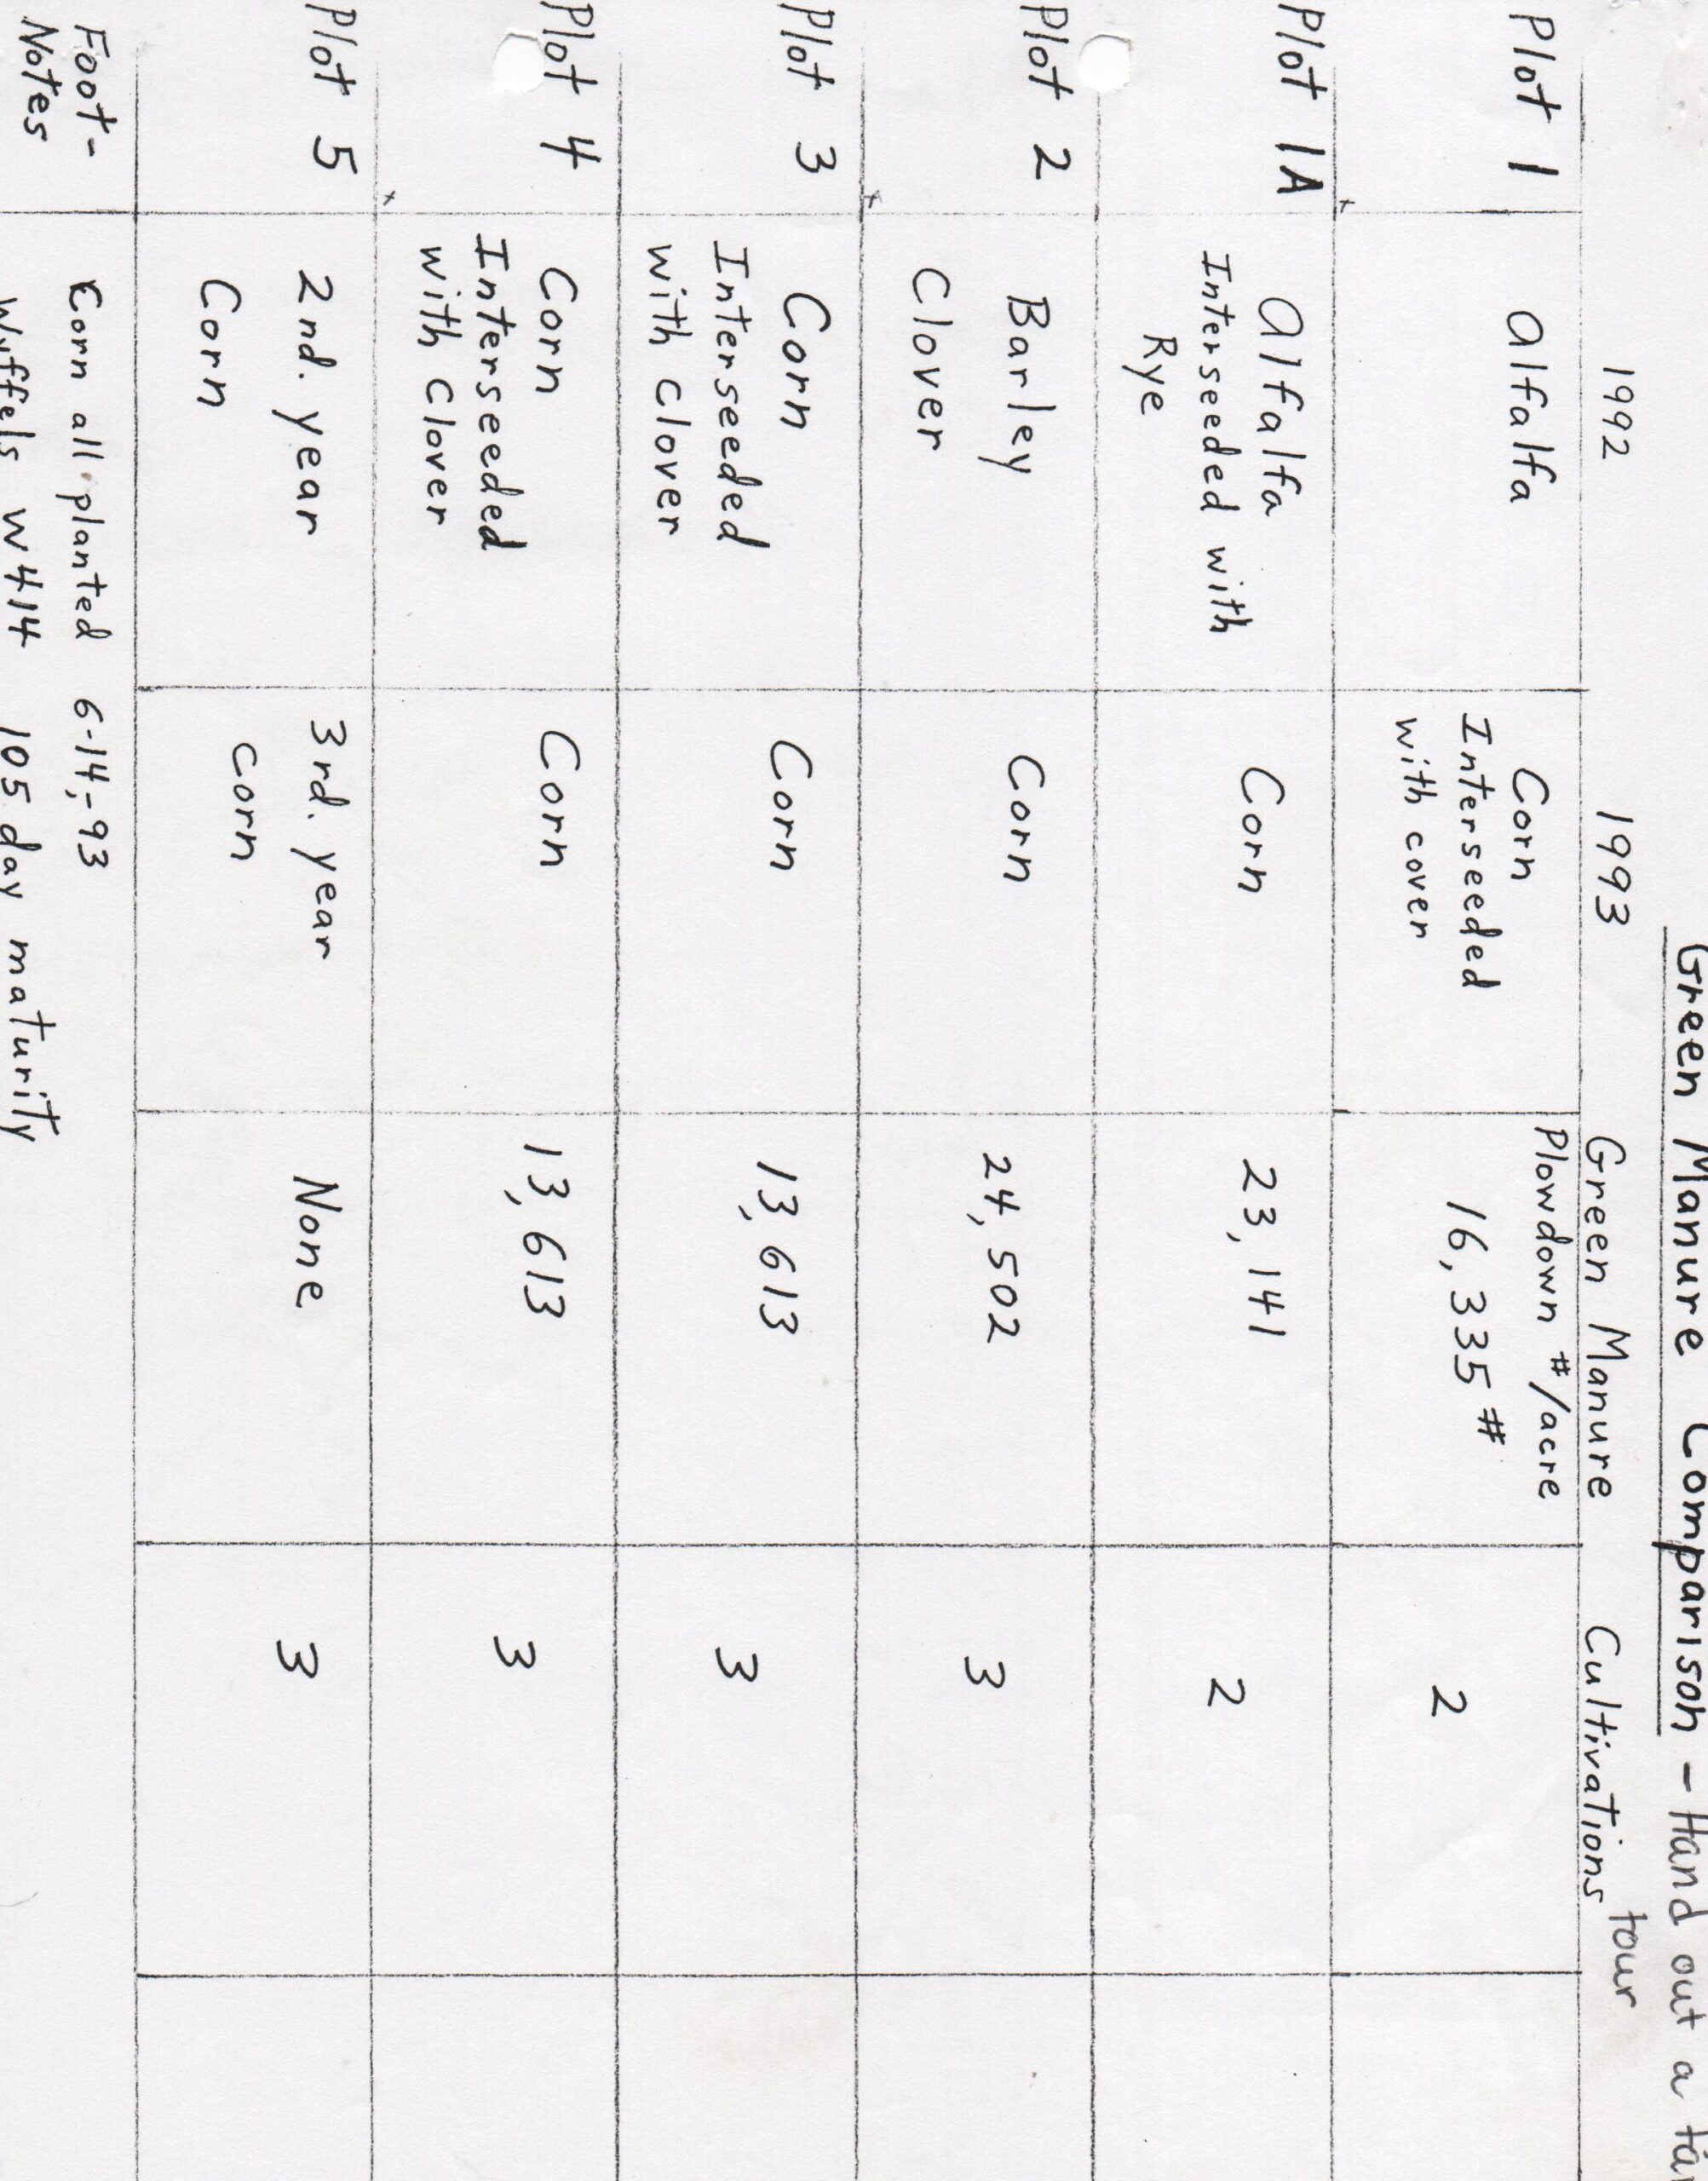 Green Manure Comparison - Hand out a
tour
1992 1993 Green Manure Cultivations
Plowdown #/acre
Plot 1 Alfalfa Corn 16,335 # 2
Interseeded
with cover
Plot 1A Alfalfa Corn 23,141 2
Interseeded with
Rye
Plot 2 Barley Corn 24,502 3
Clover
Plot 3 Corn Corn 13,613 3
Interseeded
with Clover
Plot 4 Corn Corn 13,613 3
Interseeded
with Clover
Plot 5 2nd. year 3rd. year None 3
Corn Corn
Foot- Corn all planted 6-14-93
Notes Wyffels W414 105 day maturity